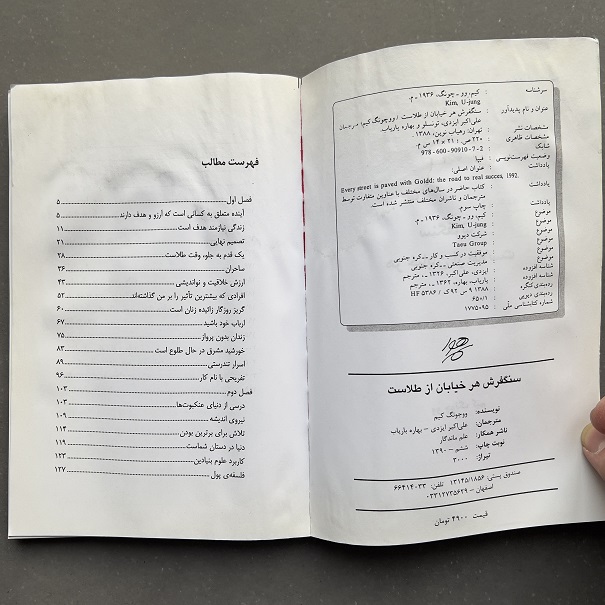 سرشناسه : کیم، وو ـ چونگ، ۱۹۳۶ ـ م.
Kim, U-jung
عنوان و نام پدیدآور : سنگفرش هر خیابان از طلاست / ووچونگ کیم؛ مترجمان
علی‌اکبر ایزدی، تونسلو و بهاره باریاب.
مشخصات نشر : تهران: رهیاب نوین، ۱۳۸۸.
مشخصات ظاهری : ۲۲۰ ص.؛ ۲۱ × ۱۴ س م.
شابک : 978 - 600 - 90910 - 7- 2
وضعیت فهرست‌نویسی : فیپا
یادداشت : عنوان اصلی:
Every street is paved with Goldd: the road to real succes, 1992.
یادداشت : کتاب حاضر در سال‌های مختلف با عناوین متفاوت توسط
مترجمان و ناشران مختلف منتشر شده است.
یادداشت : چاپ سوم.
موضوع : کیم، وو ـ چونگ، ۱۹۳۶ ـ م.
موضوع : Kim, U-jung
موضوع : شرکت دیوو
موضوع : Taeu Group
موضوع : موفقیت در کسب و کار ـ ـ کره جنوبی
موضوع : مدیریت صنعتی ـ ـ کره جنوبی
شناسه افزوده : ایزدی، علی‌اکبر، ۱۳۲۶ ـ، مترجم
شناسه افزوده : باریاب، بهاره، ۱۳۶۲ ـ، مترجم
رده‌بندی کنگره : ۱۳۸۸ ۹ س ۹۲ ک / HF ۵۳۸۶
رده‌بندی دیویی : ۶۵۰/۱
شماره کتابشناسی ملی : ۱۷۷۵۰۹۵
سنگفرش هر خیابان از طلاست
نویسنده: ووچونگ کیم
مترجمان: علی‌اکبر ایزدی - بهاره باریاب
ناشر همکار: علم ماندگار
نوبت چاپ: ششم - ۱۳۹۰
تیراژ: ۳۰۰۰
صندوق پستی: ۱۳۱۴۵/۱۸۵۶ تلفن: ۶۶۴۱۴۰۳۳
اصفهان - ۰۳۳۱۲۷۳۵۶۳۹
قیمت ۴۹۰۰ تومان
فهرست مطالب
فصل اول ۵
آینده متعلق به کسانی است که آرزو و هدف دارند ۵
زندگی نیازمند هدف است ۱۱
تصمیم نهایی ۲۱
یک قدم به جلو، وقت طلاست ۲۸
ساحران ۳۶
ارزش خلاقیت و نواندیشی ۴۳
افرادی که بیشترین تأثیر را بر من گذاشته‌اند ۵۲
گریز روزگار زائیده زنان است ۶۰
ارباب خود باشید ۶۷
زندان بدون پرواز ۷۵
خورشید مشرق در حال طلوع است ۸۳
اسرار تندرستی ۸۹
تفریحی با نام کار ۹۶
فصل دوم ۱۰۳
درسی از دنیای عنکبوت‌ها ۱۰۳
نیروی اندیشه ۱۰۹
تلاش برای برترین بودن ۱۱۴
دنیا در دستان شماست ۱۱۹
کاربرد علوم بنیادین ۱۲۳
فلسفه‌ی پول ۱۲۷